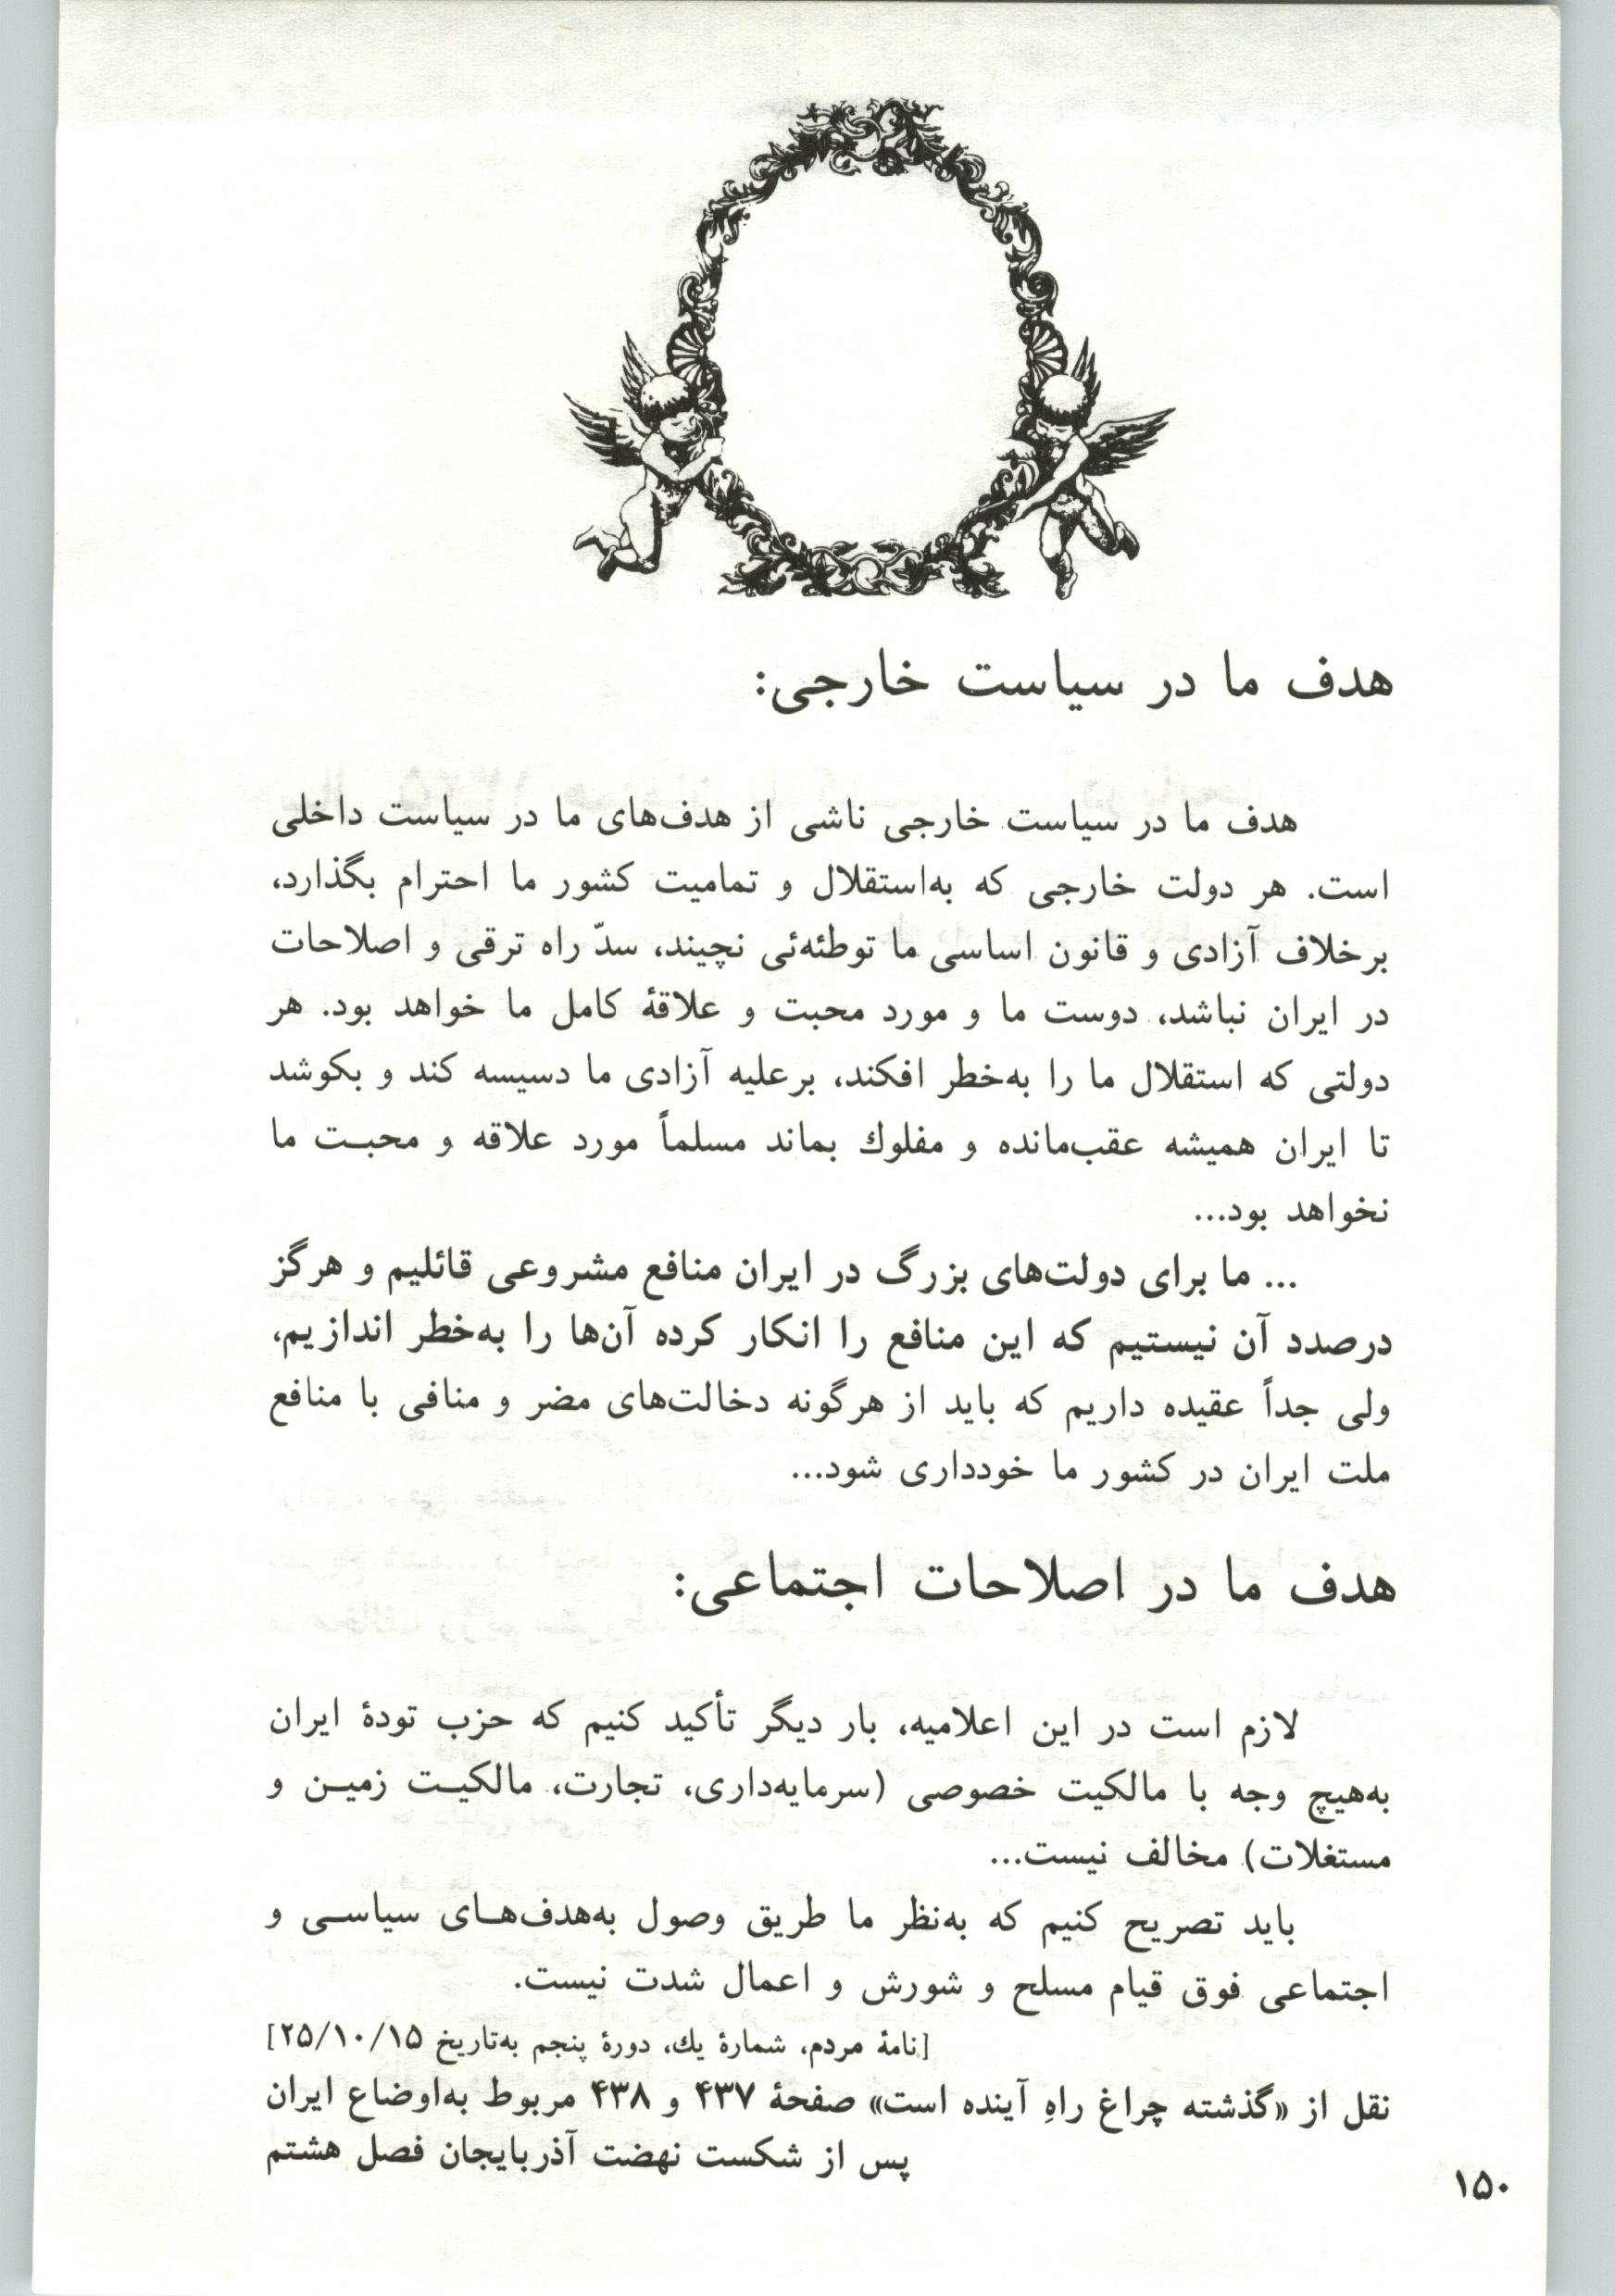 هدف ما در سیاست خارجی:
هدف ما در سیاست خارجی ناشی از هدف‌های ما در سیاست داخلی
است. هر دولت خارجی که به‌استقلال و تمامیت کشور ما احترام بگذارد،
برخلاف آزادی و قانون اساسی ما توطئه‌ئی نچیند، سدّ راه ترقی و اصلاحات
در ایران نباشد، دوست ما و مورد محبت و علاقهٔ کامل ما خواهد بود. هر
دولتی که استقلال ما را به‌خطر افکند، برعلیه آزادی ما دسیسه کند و بکوشد
تا ایران همیشه عقب‌مانده و مفلوك بماند مسلماً مورد علاقه و محبت ما
نخواهد بود...
... ما برای دولت‌های بزرگ در ایران منافع مشروعی قائلیم و هرگز
درصدد آن نیستیم که این منافع را انکار کرده آن‌ها را به‌خطر اندازیم،
ولی جداً عقیده داریم که باید از هرگونه دخالت‌های مضر و منافی با منافع
ملت ایران در کشور ما خودداری شود...
هدف ما در اصلاحات اجتماعی:
لازم است در این اعلامیه، بار دیگر تأکید کنیم که حزب تودهٔ ایران
به‌هیچ وجه با مالکیت خصوصی (سرمایه‌داری، تجارت، مالکیت زمین و
مستغلات) مخالف نیست...
باید تصریح کنیم که به‌نظر ما طریق وصول به‌هدف‌های سیاسی و
اجتماعی فوق قیام مسلح و شورش و اعمال شدت نیست.
[نامهٔ مردم، شمارهٔ یك، دورهٔ پنجم به‌تاریخ ۲۵/۱۰/۱۵]
نقل از «گذشته چراغ راهِ آینده است» صفحهٔ ۴۳۷ و ۴۳۸ مربوط به‌اوضاع ایران
پس از شکست نهضت آذربایجان فصل هشتم
۱۵۰